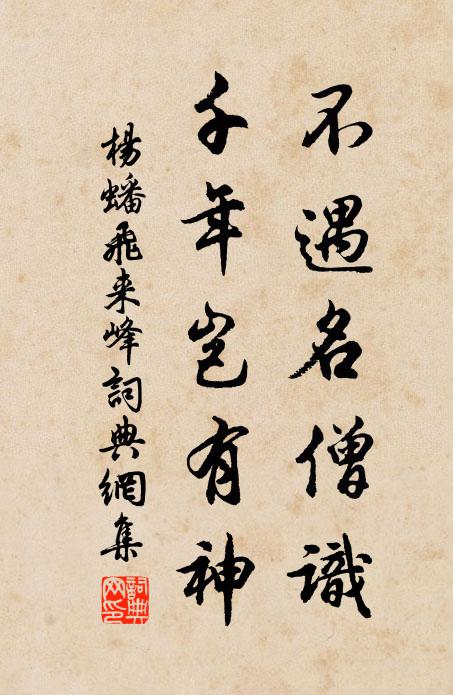 不遇名僧識
千年豈有神
楊蟠飛来峰詞典網集
詞典网印